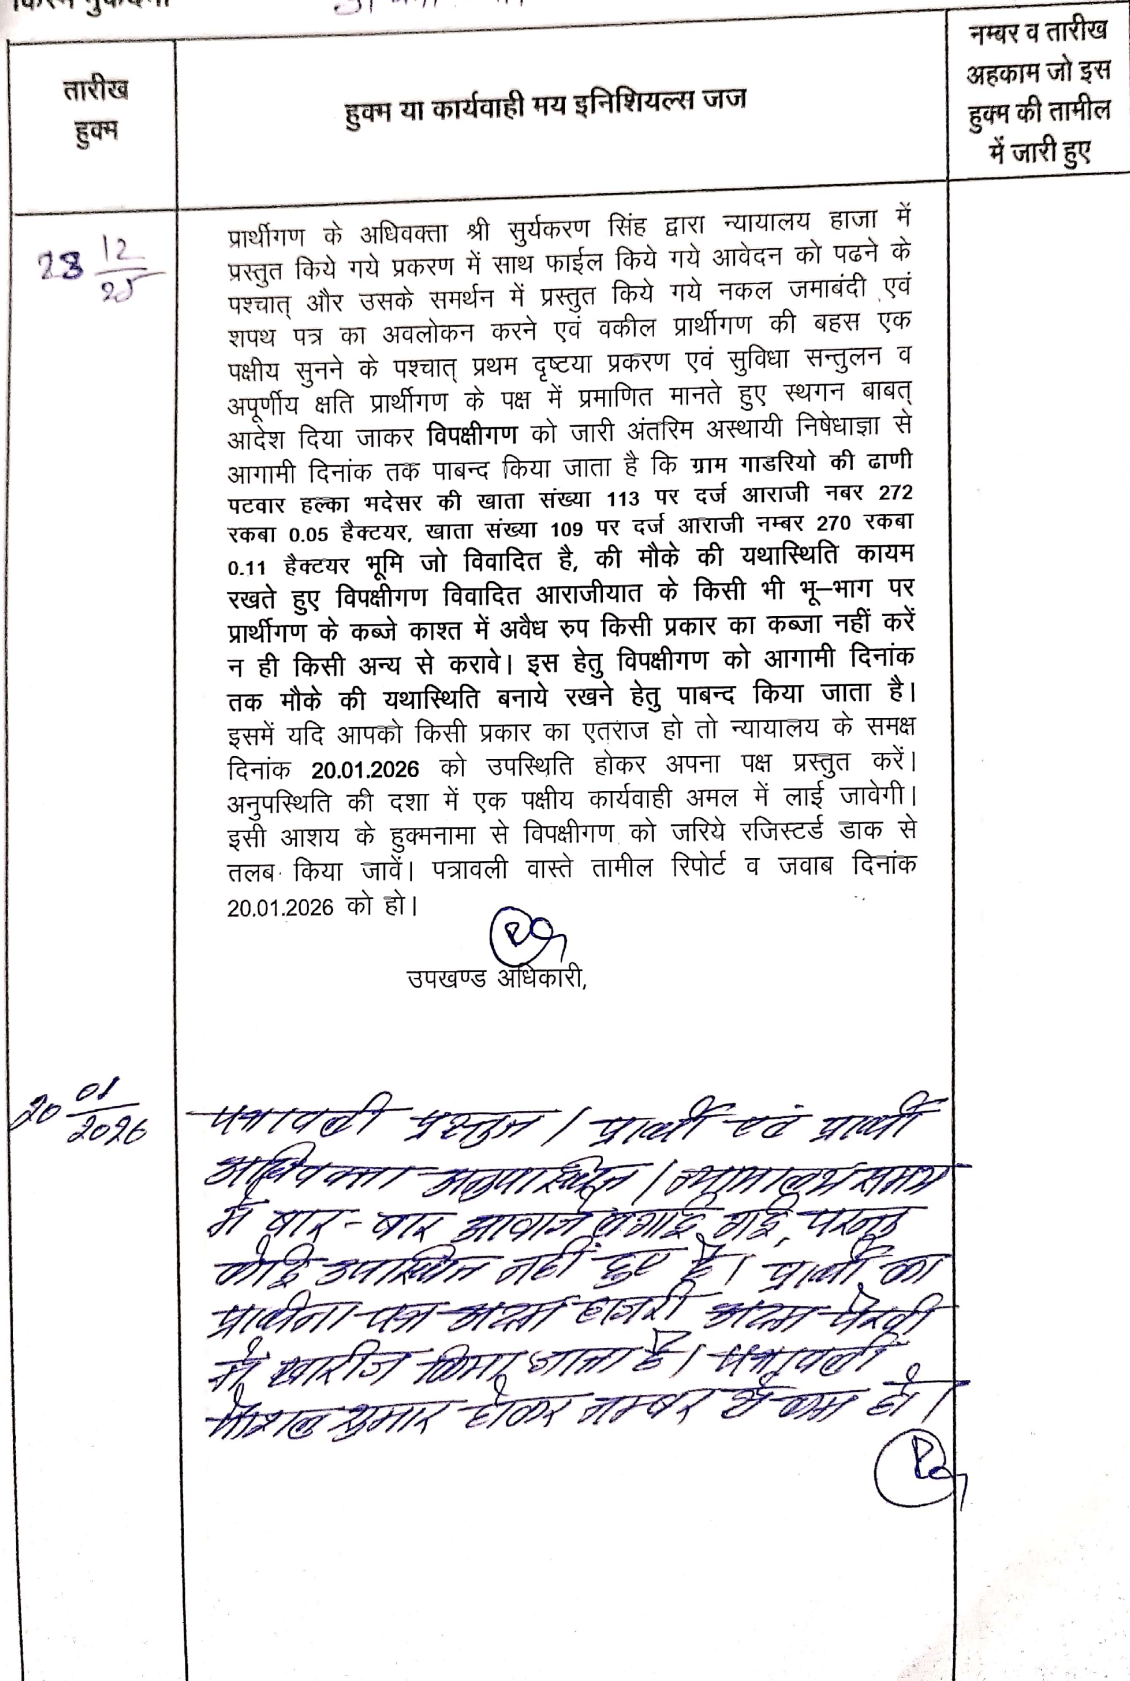 तारीख
हुक्म
हुक्म या कार्यवाही मय इनिशियल्स जज
नम्बर व तारीख
अहकाम जो इस
हुक्म की तामील
में जारी हुए
28 12/25
प्रार्थीगण के अधिवक्ता श्री सुर्यकरण सिंह द्वारा न्यायालय हाजा में
प्रस्तुत किये गये प्रकरण में साथ फाईल किये गये आवेदन को पढने के
पश्चात् और उसके समर्थन में प्रस्तुत किये गये नकल जमाबंदी एवं
शपथ पत्र का अवलोकन करने एवं वकील प्रार्थीगण की बहस एक
पक्षीय सुनने के पश्चात् प्रथम दृष्टया प्रकरण एवं सुविधा सन्तुलन व
अपूर्णीय क्षति प्रार्थीगण के पक्ष में प्रमाणित मानते हुए स्थगन बाबत्
आदेश दिया जाकर विपक्षीगण को जारी अंतरिम अस्थायी निषेधाज्ञा से
आगामी दिनांक तक पाबन्द किया जाता है कि ग्राम गाडरियो की ढाणी
पटवार हल्का भदेसर की खाता संख्या 113 पर दर्ज आराजी नबर 272
रकबा 0.05 हैक्टयर, खाता संख्या 109 पर दर्ज आराजी नम्बर 270 रकबा
0.11 हैक्टयर भूमि जो विवादित है, की मौके की यथास्थिति कायम
रखते हुए विपक्षीगण विवादित आराजीयात के किसी भी भू–भाग पर
प्रार्थीगण के कब्जे काश्त में अवैध रुप किसी प्रकार का कब्जा नहीं करें
न ही किसी अन्य से करावे। इस हेतु विपक्षीगण को आगामी दिनांक
तक मौके की यथास्थिति बनाये रखने हेतु पाबन्द किया जाता है।
इसमें यदि आपको किसी प्रकार का एतराज हो तो न्यायालय के समक्ष
दिनांक 20.01.2026 को उपस्थिति होकर अपना पक्ष प्रस्तुत करें।
अनुपस्थिति की दशा में एक पक्षीय कार्यवाही अमल में लाई जावेगी।
इसी आशय के हुक्मनामा से विपक्षीगण को जरिये रजिस्टर्ड डाक से
तलब किया जावें। पत्रावली वास्ते तामील रिपोर्ट व जवाब दिनांक
20.01.2026 को हो।
उपखण्ड अधिकारी,
20 01/2026
पत्रावली प्रस्तुत। प्रार्थी एवं प्रार्थी
अधिवक्ता अनुपस्थित। न्यायालय समय
में बार-बार आवाजे लगाई गई, परन्तु
कोई उपस्थित नहीं हुए है। प्रार्थी का
प्रार्थना पत्र अदम हाजरी अदम पैरवी
में खारीज किया जाता है। पत्रावली
फैशल शुमार होकर नम्बर से कम हो।